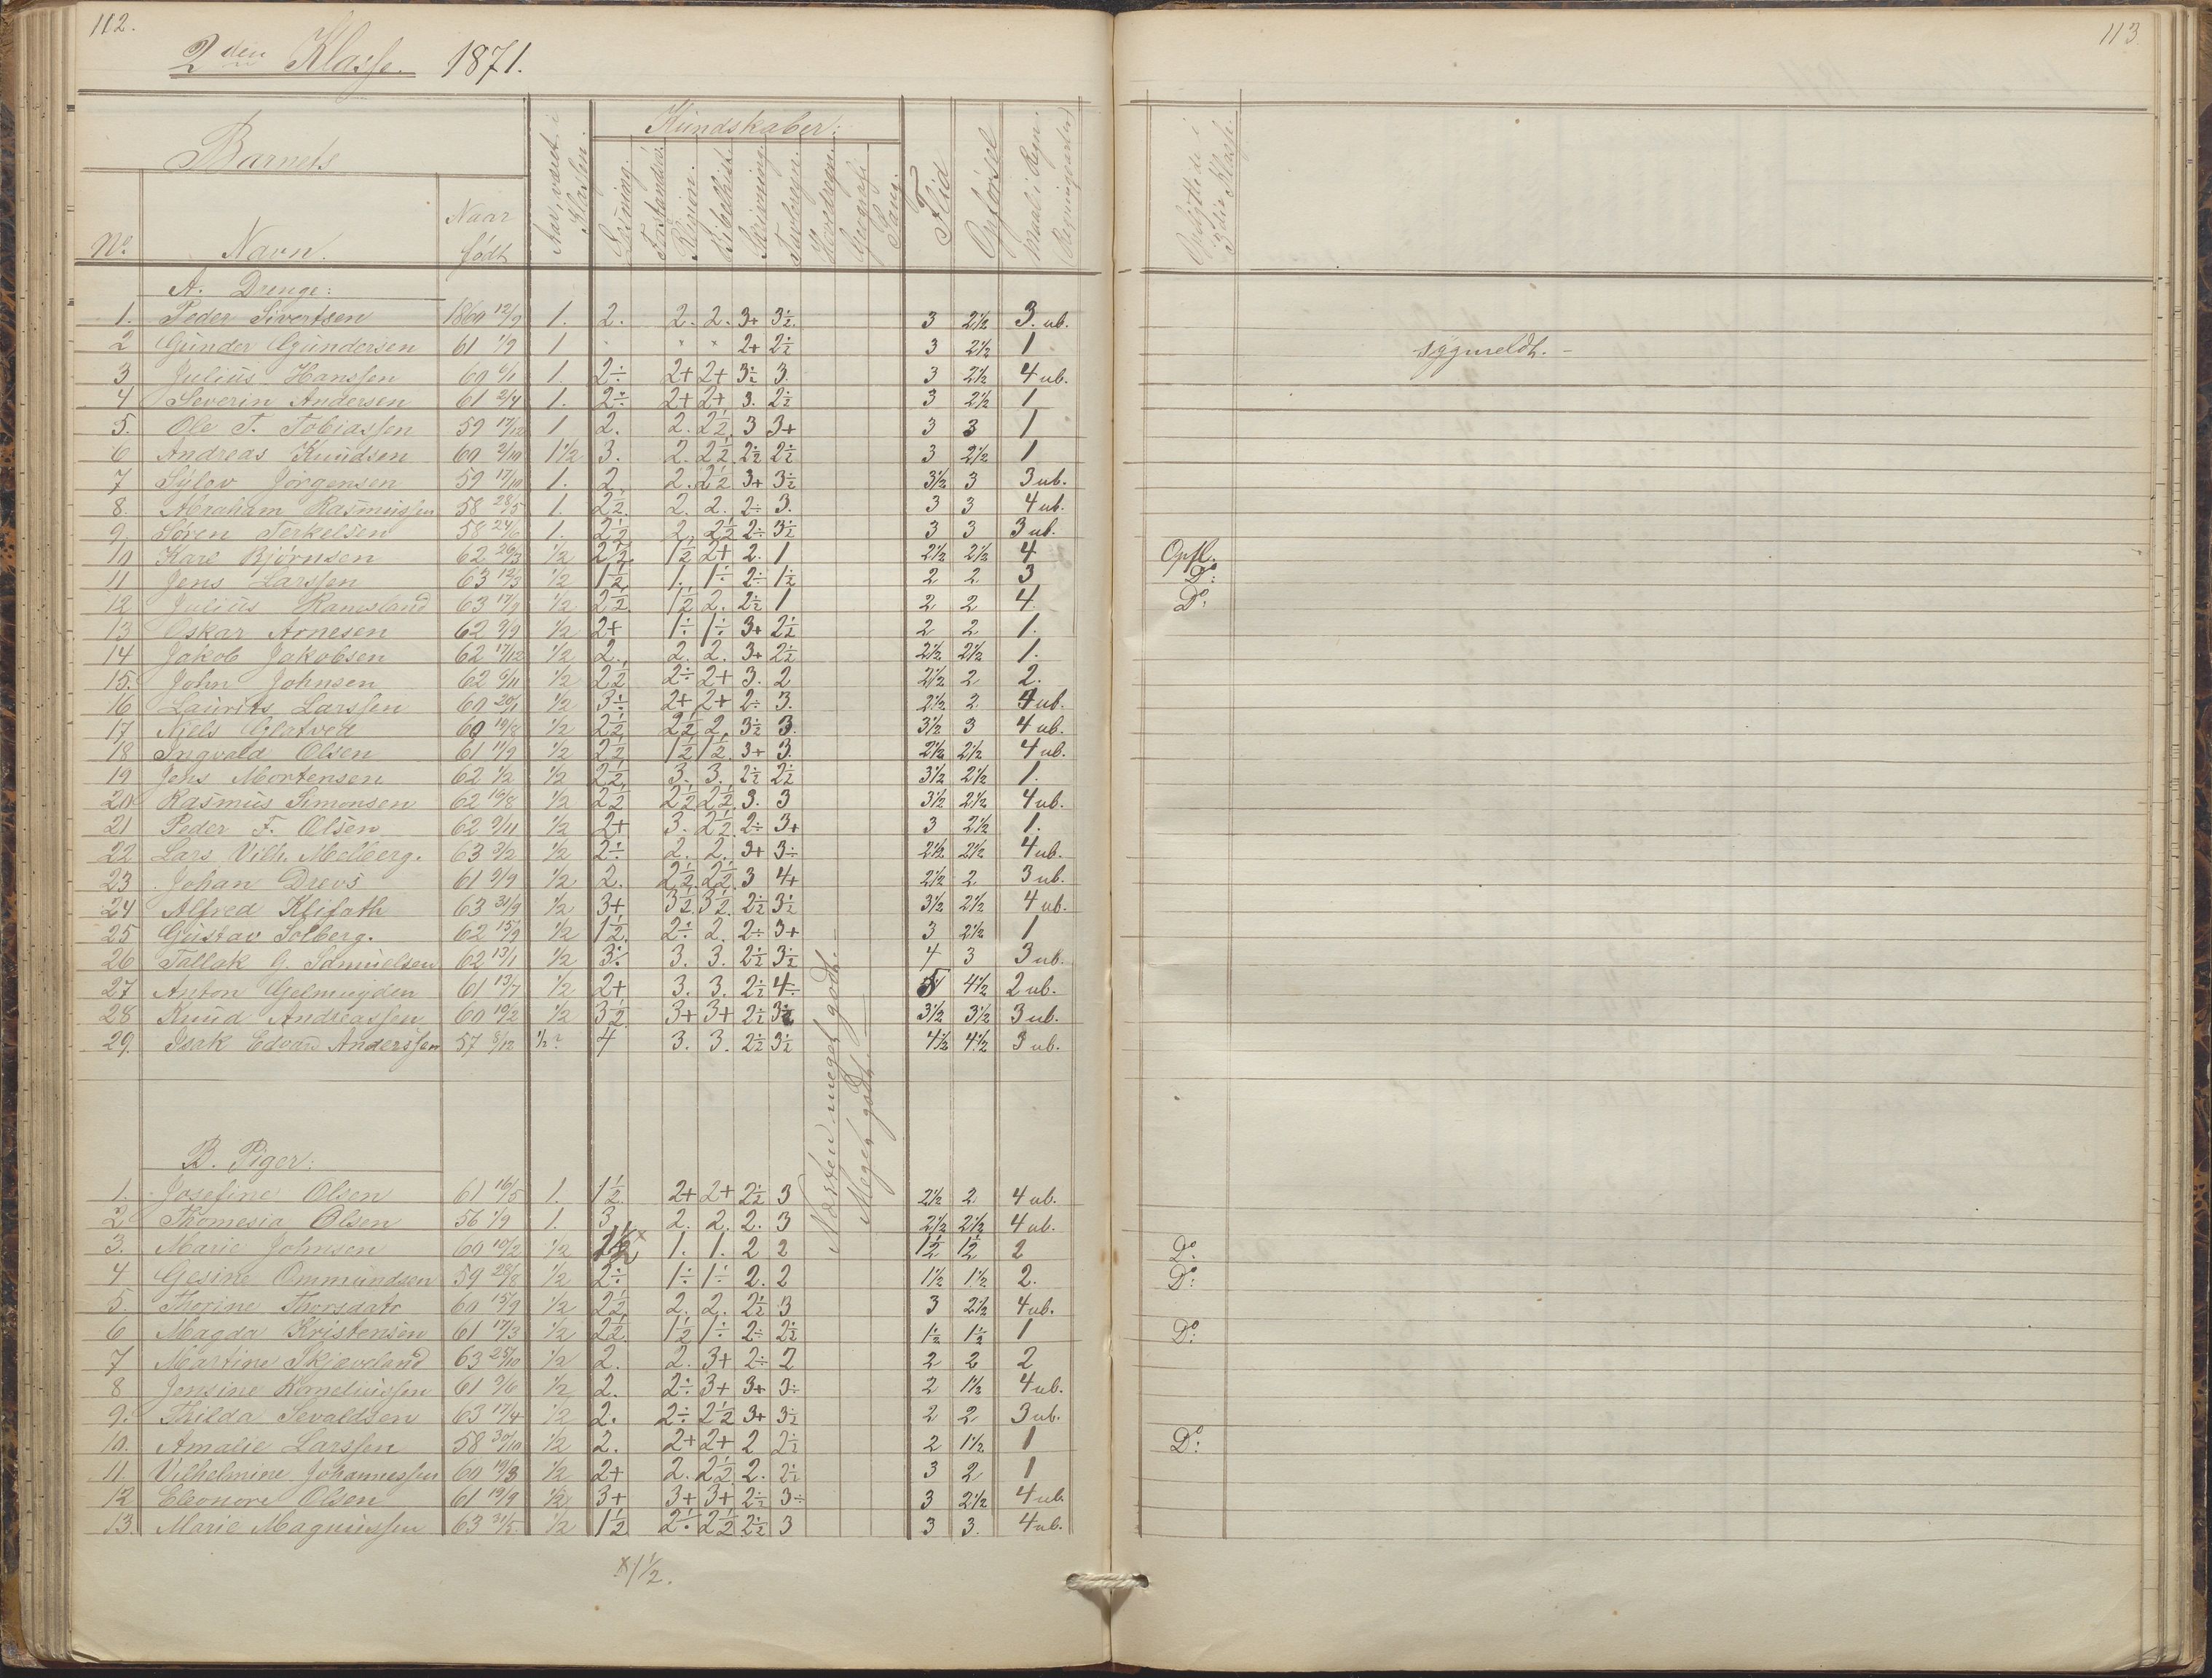 112.
113
2den Klasse. 1871.
Barnets
Kundskaber:
No.
Navn.
Naar født
Aar, været i Klassen.
Læsning.
Forstandsøv.
Religion.
Bibelhist.
Skrivning.
Tavleregn.
Hovedregn.
Geografi
Sang.
Flid
Opførsel
Maal i Regn. (Regningsarter)
Opflyttede i 3die Klasse.
A. Drenge:
1. Peder Sivertsen 1860 12/9 1. 2. 2. 2. 3+ 3½ 3 2½ 3. ub.
2 Gunder Gundersen 61 1/9 1 " " " 2+ 2½ 3 2½ 1 sygmeldt. -
3 Julius Hanssen 60 6/1 1. 2÷ 2+ 2+ 3½ 3. 3 2½ 4 ub.
4 Severin Andersen 61 2/4 1. 2÷ 2+ 2+ 3. 2½ 3 2½ 1
5. Ole T. Tobiassen 59 17/12 1 2. 2. 2½ 3 3+ 3 3 1
6 Andreas Knudsen 60 2/10 1½ 3. 2. 2½ 2½ 2½ 3 2½ 1
7 Sylev Jörgensen 59 17/10 1. 2. 2. 2½ 3+ 3½ 3½ 3 3 ub.
8. Abraham Rasmussen 58 28/5 1. 2½ 2. 2. 2÷ 3. 3 3 4 ub.
9. Sören Terkelsen 58 24/6 1. 2½ 2. 2½ 2÷ 3½ 3 3 3 ub.
10 Karl Bjørnsen 62 26/3 ½ 2½ 1½ 2+ 2. 1 2½ 2½ 4 Opfl.
11 Jens Larssen 63 12/3 ½ 1½ 1. 1÷ 2÷ 1½ 2 2 3 Do:
12 Julius Ranesland 63 17/2 ½ 2½ 1½ 2. 2½ 1 2 2 4. Do:
13 Oskar Arnesen 62 9/9 ½ 2+ 1÷ 1÷ 3+ 2½ 2 2 1.
14 Jakob Jakobsen 62 17/12 ½ 2. 2. 2. 3+ 2½ 2½ 2½ 1.
15. John Johnsen 62 6/11 ½ 2½ 2÷ 2+ 3. 2 2½ 2 2.
16 Laurits Larssen 60 20/1 ½ 3÷ 2+ 2+ 2÷ 3. 2½ 2 4 ub.
17 Niels Glatved 60 19/8 ½ 2½ 2½ 2. 3½ 3. 3½ 3 4 ub.
18 Ingvald Olsen 61 11/9 ½ 2½ 1½ 1½ 3+ 3. 2½ 2½ 4 ub.
19 Jens Mortensen 62 1/2 ½ 2½ 3. 3. 2½ 2½ 3½ 2½ 1.
20 Rasmus Simonsen 62 16/8 ½ 2½ 2½ 2½ 3. 3 3½ 2½ 4 ub.
21 Peder F. Olsen 62 9/11 ½ 2+ 3. 2½ 2÷ 3+ 3 2½ 1.
22 Lars Vilh. Melberg. 63 3/2 ½ 2÷ 2. 2. 3+ 3÷ 2½ 2½ 4 ub.
23 Johan Drevs 61 9/9 ½ 2. 2½ 2½ 3 4+ 2½ 2 3 ub.
24 Alfred Klifath 63 ½ 3+ 3½ 3½ 2½ 3½ 3½ 2½ 4 ub.
25 Gustav Solberg. 62 15/9 ½ 1½ 2÷ 2. 2÷ 3+ 3 2½ 1
26 Tallak G. Samuelsen 62 13/1 ½ 3÷ 3. 3. 2½ 3½ 4 3 3 ub.
27 Anton Gjelmuyden 61 13/7 ½ 2+ 3. 3. 2½ 4÷ 5 4½ 2 ub.
28 Knud Andreassen 60 19/2 ½ 3½ 3+ 3+ 2½ 3½ 3½ 3½ 3 ub.
29. Isak Edvard Anderssen 57 8/12 ½? 4 3. 3. 2½ 3½ 4½ 4½ 3 ub.
Næsten meget godt. -
Meget godt. -
B. Piger:
1. Josefine Olsen 61 16/5 1. 1½ 2+ 2+ 2½ 3 2½ 2 4 ub.
2 Thomesia Olsen 56 1/9 1. 3 2. 2. 2. 3 2½ 2½ 4 ub.
3. Marie Johnsen 60 19/2 ½ 1½ x 1. 1. 2 2 1½ 1½ 2 Do:
4 Gesine Ommundsen 59 28/8 ½ 2÷ 1÷ 1÷ 2. 2 1½ 1½ 2. Do:
5. Thorine Thorsdatr 60 15/9 ½ 2½ 2. 2. 2½ 3 3 2½ 4 ub.
6 Magda Kristensen 61 17/3 ½ 2½ 1½ 1÷ 2÷ 2½ 1½ 1½ 1 Do:
7 Martine Skjæveland 63 25/10 ½ 2. 2. 3+ 2÷ 2 2 2 2
8 Jensine Korneliussen 61 9/6 ½ 2. 2÷ 3+ 3+ 3÷ 2 1½ 4 ub.
9. Thilda Sevaldsen 63 17/4 ½ 2. 2÷ 2½ 3+ 3½ 2 2 3 ub.
10. Amalie Larssen 58 30/10 ½ 2. 2+ 2+ 2 2½ 2 1½ 1 Do:
11. Vilhelmine Johannessen 60 19/3 ½ 2+ 2. 2½ 2. 2½ 3 2 1
12 Eleonore Olsen 61 19/9 ½ 3+ 3+ 3+ 2½ 3÷ 3 2½ 4 ub.
13. Marie Magnussen 63 ½ 1½ 2÷ 2½ 2½ 3 3 3. 4 ub.
x 1½.